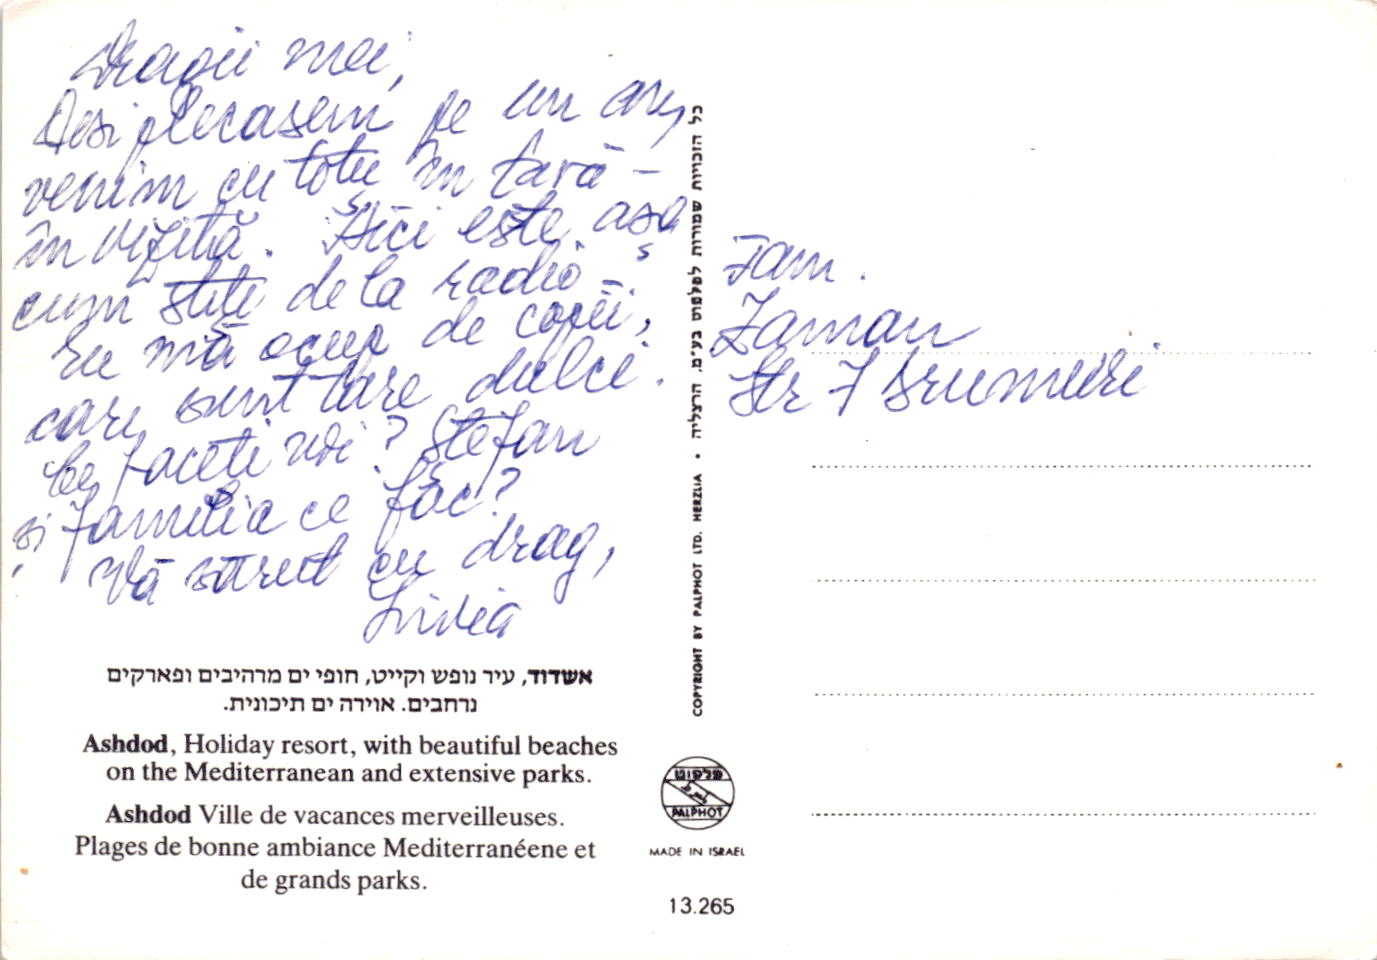 Dragii mei,
Desi plecasem pe un an,
venim cu totii în tară –
în vizită. Aici este asa
cum stiti de la radio –
Eu mă ocup de copii,
care sunt tare dulci.
Ce faceti voi? Stefan
și familia ce fac?
Vă sărut cu drag,
Livia
Fam.
Zaman
Str 7 Drumuri
אשדוד, עיר נופש וקייט, חופי ים מרהיבים ופארקים
נרחבים. אוירה ים תיכונית.
Ashdod, Holiday resort, with beautiful beaches
on the Mediterranean and extensive parks.
Ashdod Ville de vacances merveilleuses.
Plages de bonne ambiance Mediterranéene et
de grands parks.
כל הזכויות שמורות לפלפוט בע"מ. הרצליה • COPYRIGHT BY PALPHOT LTD. HERZLIA
פלפוט
PALPHOT
MADE IN ISRAEL
13.265